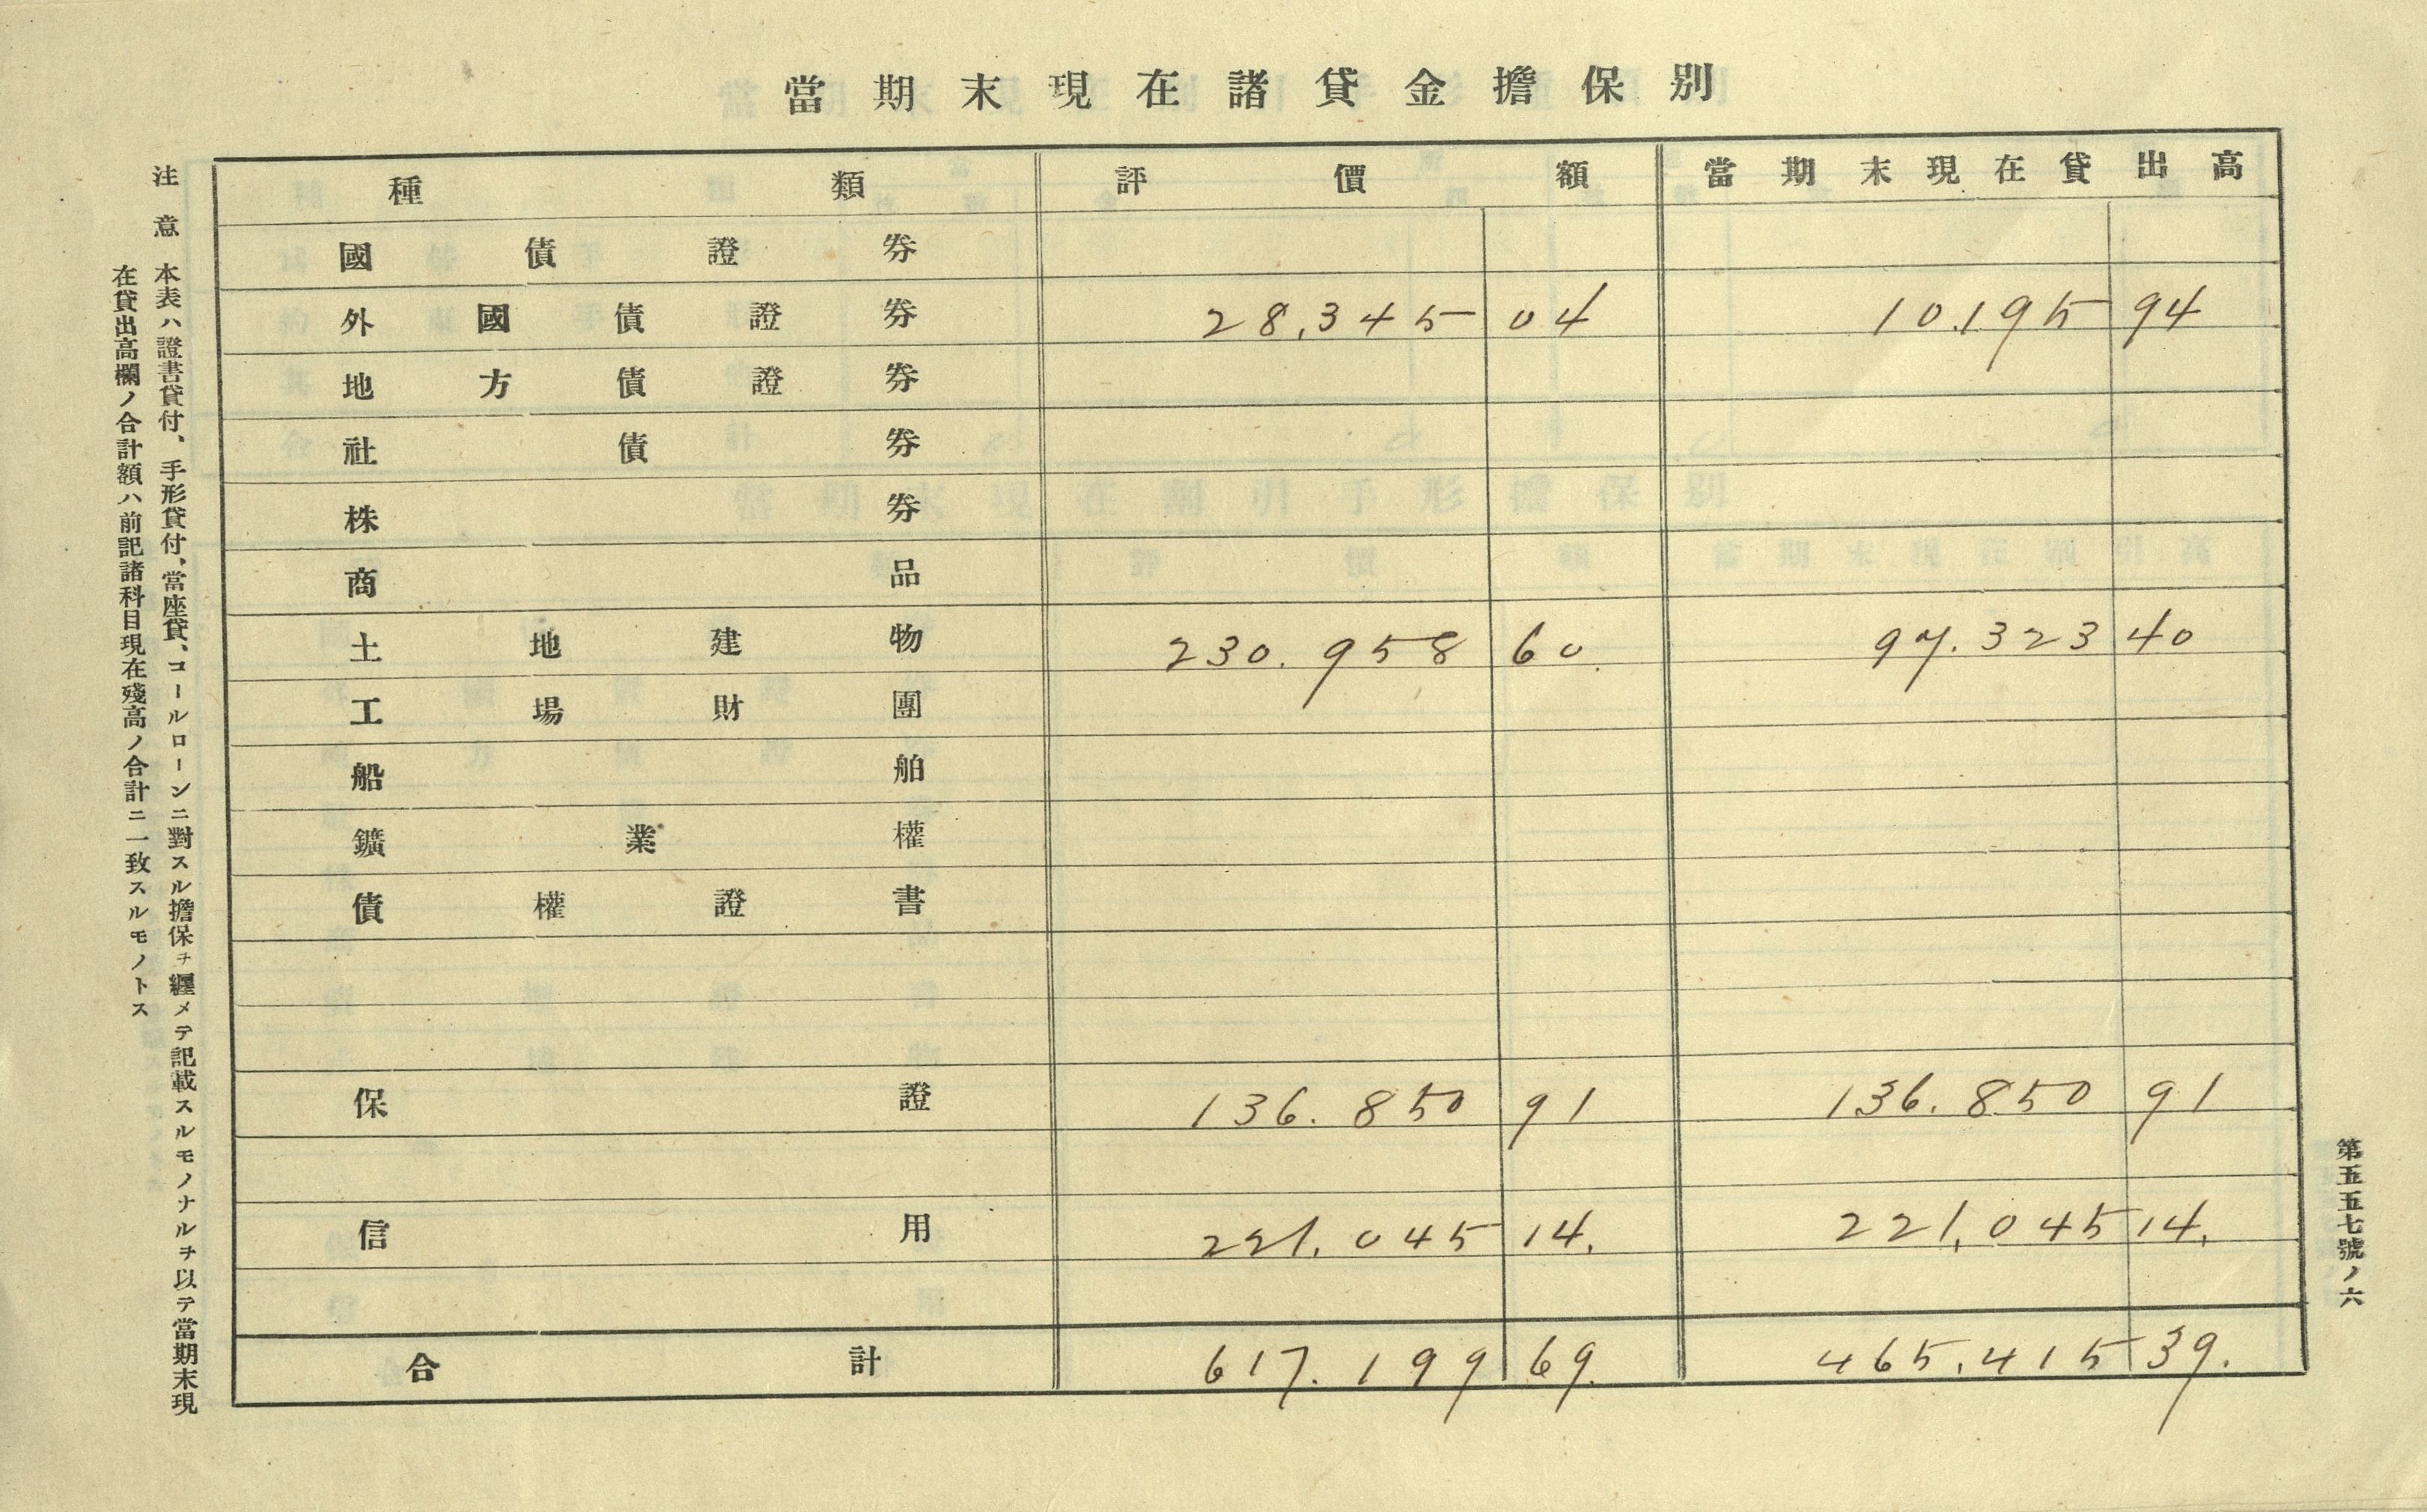 當期末現在諸貸金擔保別
種類 評價額 當期末現在貸出高
國債證券
外國債證券 28,345 04 10.195 94
地方債證券
社債券
株券
商品
土地建物 230.958 60. 97.323 40
工場財團
船舶
鑛業權
債權證書
保證 136.850 91 136.850 91
信用 221.045 14. 221,045 14.
合計 617.199 69. 465.415 39.
注意 本表ハ證書貸付、手形貸付、當座貸、コールローンニ對スル擔保ヲ纒メテ記載スルモノナルヲ以テ當期末現
在貸出高欄ノ合計額ハ前記諸科目現在殘高ノ合計ニ一致スルモノトス
第五五七號ノ六